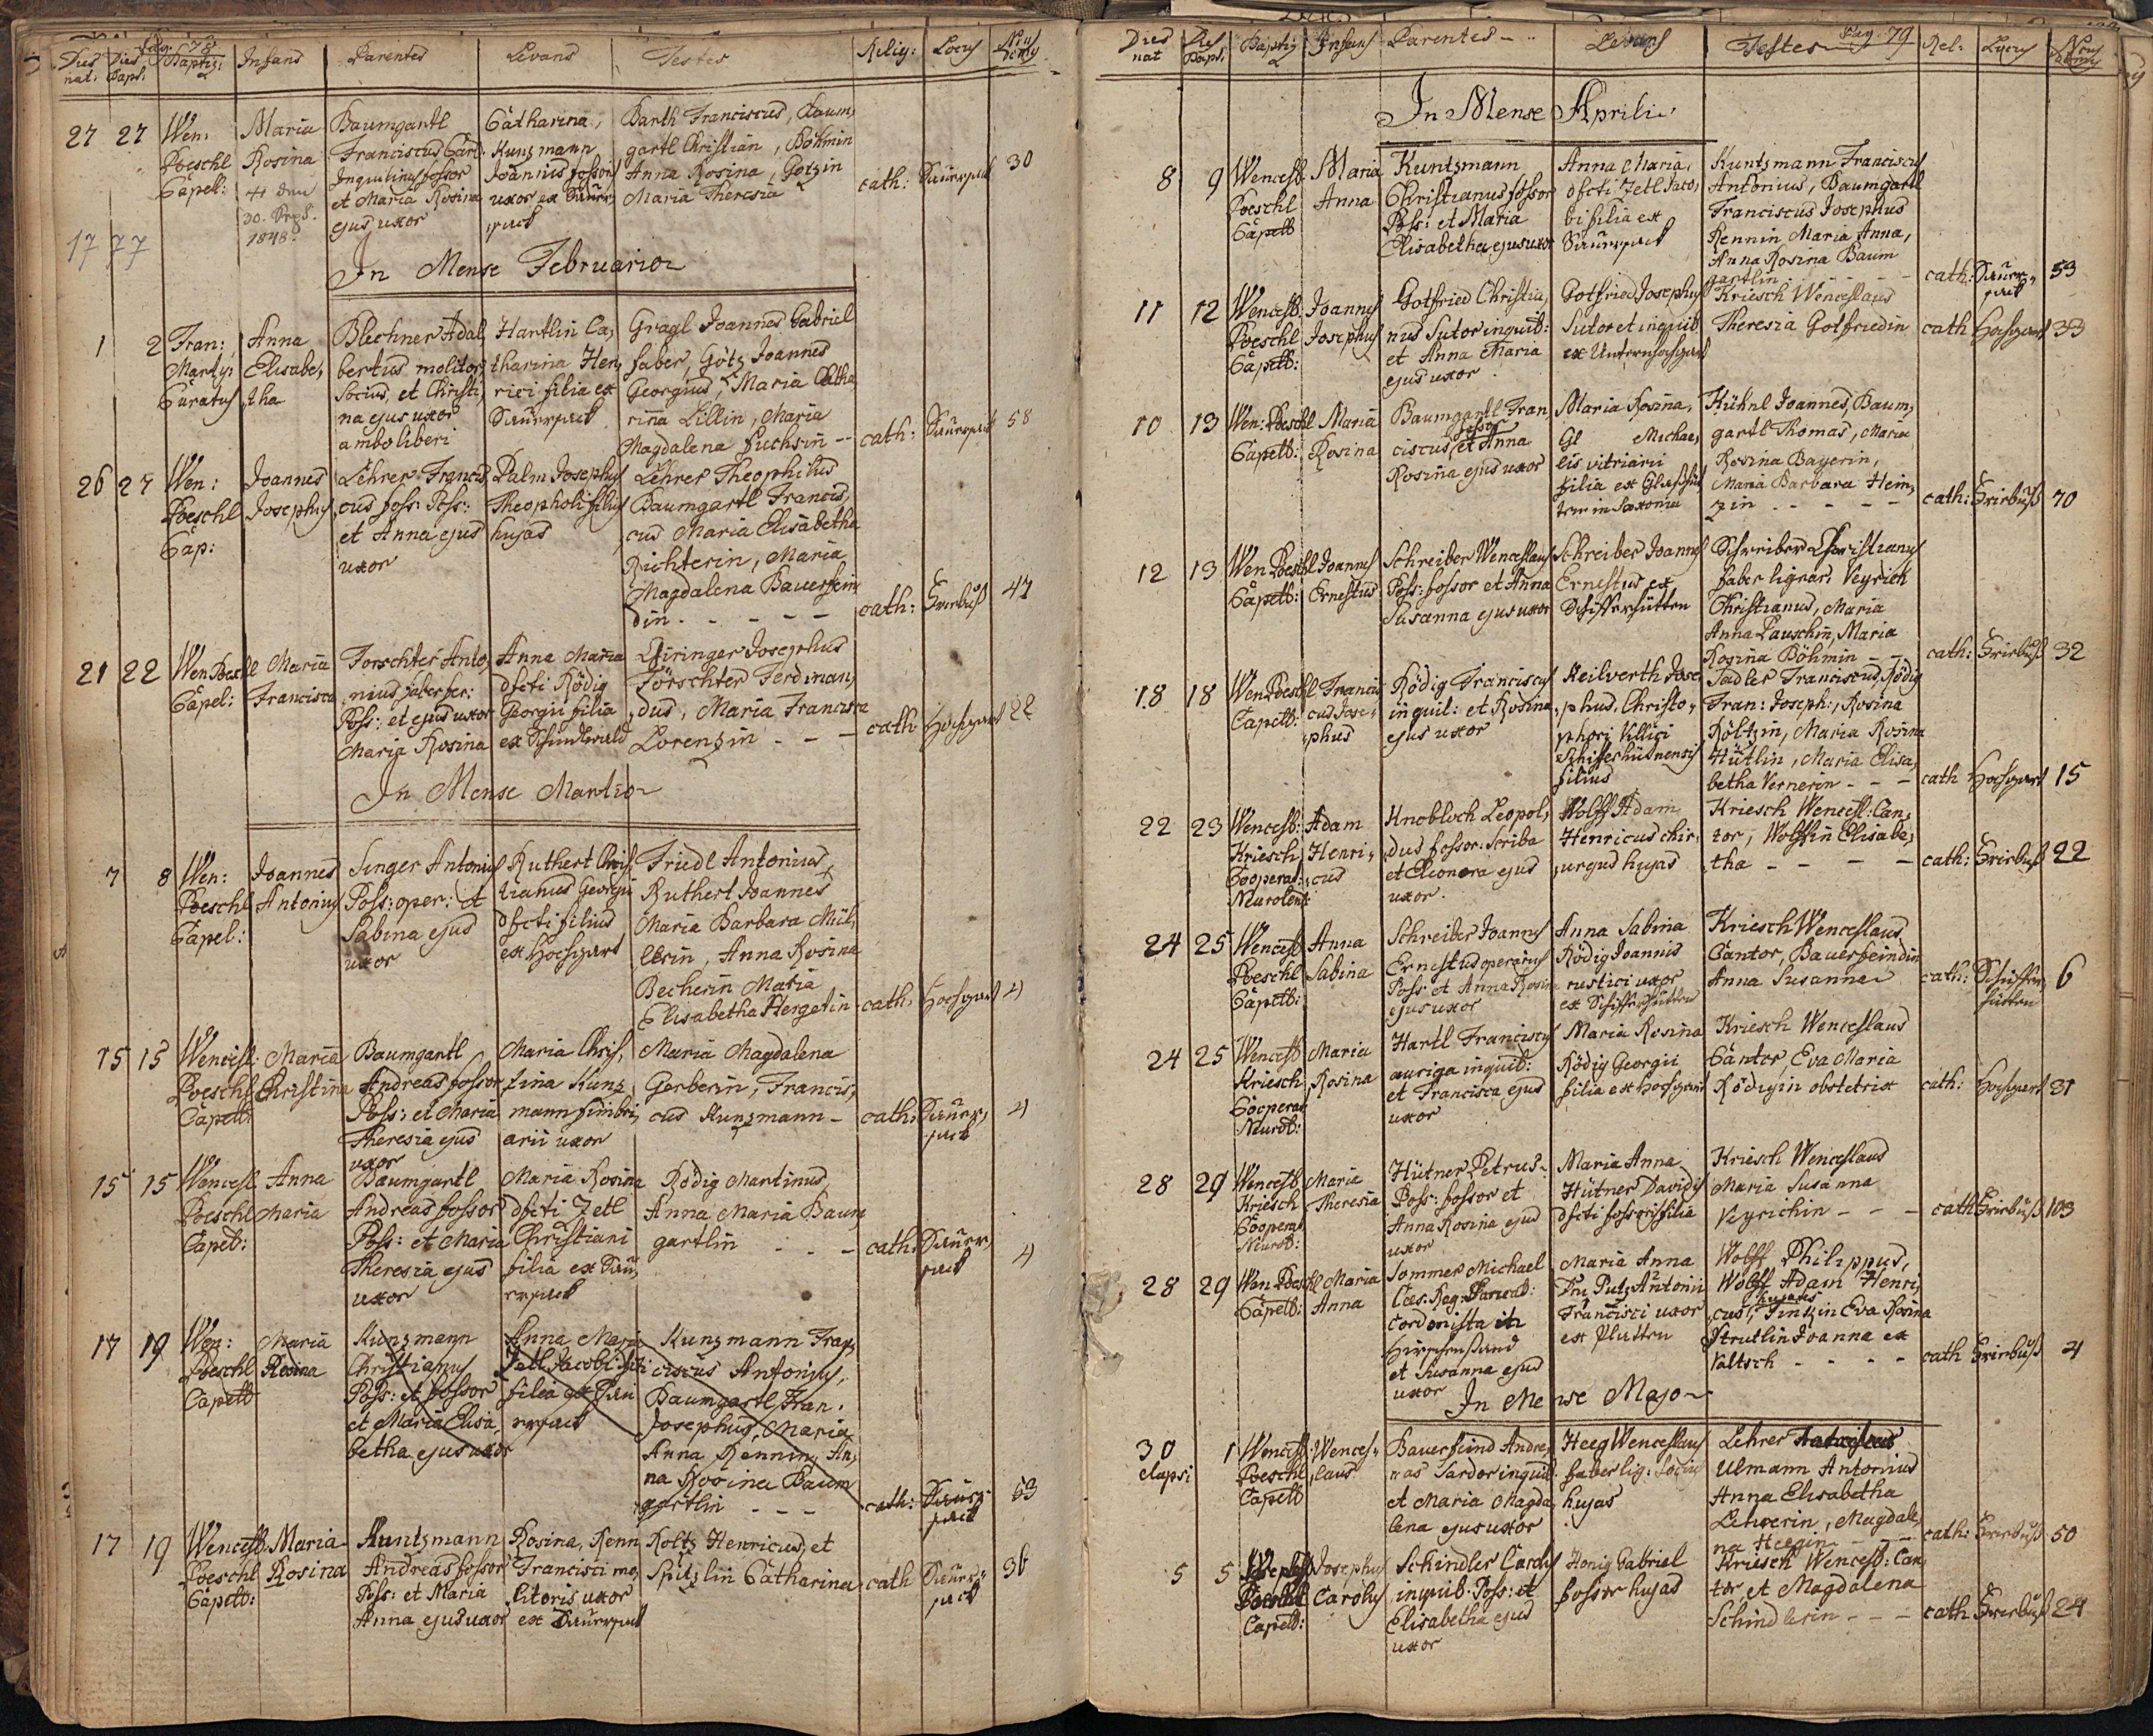 Pag. 78
Dies nat: Dies Bapt. Baptiz: Infans Parentes Levans Testes Relig: Locus Nrus domus
27 27 Wen: Poeschl Capel:
Maria
Rosina
30. Sept.
1848.
Baumgartl
Franciscus Carl
Inquilinus fossor
et Maria Rosina
ejus uxor
Catharina,
Kunzmann
Joannis fossoris
uxor ex Sauer,
sack
Barth Franciscus, Baum,
gartl Christian, Böhmin
Anna Rosina, Götzin
Maria Theresia
cath: Sauersack 30
1777
In Mense Februario
1 2 Fran: Martys Curatus
Anna
Elisabe,
tha
Blechner Adal,
bertus molitor,
Socius, et Christi,
na ejus uxor
ambo liberi
Hartlin Ca,
tharina Hen,
rici filia ex
Sauersack
Gragl Joannes Gabriel
faber, Götz Joannes
Georgius, Maria Catha
rina Lillin, Maria
Magdalena Fuchsin --
cath: Sauersack 58
26 27 Wen: Poeschl Cap:
Joannes
Josephus
Lehrer Francis,
cus foss: Poss:
et Anna ejus
uxor
Palm Josephus
Theopholi filius
hujas
Lehrer Theophilus
Baumgartl Francis,
cus Maria Elisabetha
Richterin, Maria
Magdalena Bauerfein
din - - - - -
cath: Frirbuß 47
21 22 Wen Poeschl Capel:
Maria
Francisca
Forschter Anto,
nius faber fer:
Poss: et ejus uxor
Maria Rosina
Anna Maria
dfcti Rödig
Georgii filia
ex Schindlwald
Eiringer Josephus
Förschter Ferdinan,
dus, Maria Francisca
Lorenzin - - -
cath Hochgart 22
In Mense Martio
7 8 Wen: Poeschl Capel:
Joannes
Antonius
Singer Antonius
Poss: oper: et
Sabina ejus
uxor
Ruthert Chris,
tianus Georgii
dfcti filius
ex Hochgart
Friedl Antonius,
Ruthert Joannes
Maria Barbara Mül,
lerin, Anna Rosina
Becherin Maria
Elisabetha Hergetin
cath: Hochgart 4
15 15 Wencesl: Poeschl Capell:
Maria
Christina
Baumgartl
Andreas fossor
Poss: et Maria
Theresia ejus
uxor
Maria Chris,
tina Kunz,
mann fimbri,
arii uxor
Maria Magdalena
Gerberin, Francis,
cus Kunzmann -
cath: Sauer, sack 4
15 15 Wencesl Poeschl Capel:
Anna
Maria
Baumgartl
Andreas fossor
Poss: et Maria
Theresia ejus
uxor
Maria Rosina
dfcti Zetl
Christiani
filia ex Sau,
ersack
Rödig Martinus,
Anna Maria Baum
gartlin - - -
cath: Sauer, sack 4
17 19 Wen: Poeschl Capell
Maria
Rosina
Kunzmann
Christianus
Poss: et fossor
et Maria Elisa,
betha ejus uxor
Anna Maria
Zetl Jacobi dfcti
filia ex Sau
ersack
Kunzmann Fran,
ciscus Antonius,
Baumgartl Fran.
Josephus, Maria
Anna Rennin, An,
na Rosina Baum
gartlin - - -
cath: Sauer, sack 53
17 19 Wencesl: Poeschl Capell:
Maria
Rosina
Kuntzmann
Andreas fossor
Poss: et Maria
Anna ejus uxor
Rosina, Renn
Francisci mo,
litoris uxor
ex Sauersack
Roltz Henricus, et
Spützlin Catharina
cath Sauer, sack 36
Pag. 79
Dies nat Dies Bapt. Baptiz Infans Parentes Levans Testes Rel: Locus Nrus domus
In Mense Aprili
8 9 Wencesl Poeschl Capell
Maria
Anna
Kuntzmann
Christianus fossor
Poss: et Maria
Elisabetha ejus uxor
Anna Maria,
dfcti Zetl Jaco,
bi filia ex
Sauersack
Kuntzmann Franciscus
Antonius, Baumgartl
Franciscus Josephus
Rennin Maria Anna,
Anna Rosina Baum
gartlin
cath: Sauer, sack 53
11 12 Wencesl: Poeschl Capell:
Joannes
Josephus
Gotfried Christia,
nus Sutor inquil:
et Anna Maria
ejus uxor
Gotfried Josephus
Sutor et inquil:
ex Unternhochgart
Kriesch Wenceslaus
Theresia Gotfriedin
cath Hochgart 33
10 13 Wen: Poeschl Capell:
Maria
Rosina
Baumgartl Fran,
fossor
ciscus, et Anna
Rosina ejus uxor
Maria Rosina,
Gl Michae,
lis vitriarii
filia ex
in Saxonia
Kühnl Joannes, Baum,
gartl Thomas, Maria
Rosina Bayerin,
Maria Barbara Hein,
zin - - - - -
cath: Frirbuß 70
12 13 Wen Poeschl Capell:
Joannes
Ernestus
Schreiber Wenceslaus
Poss: fossor et Anna
Susanna ejus uxor
Schreiber Joannes
Ernestus ex
Schifferhütten
Schreiber Christianus
faber lignar: Veyrich
Christianus, Maria
Anna Pauschin, Maria
Rosina Böhmin - -
cath: Frirbuß 32
18 18 Wen Poeschl Capell:
Francis
cus Jose,
phus
Rödig Franciscus
inquil: et Rosina
ejus uxor
Keilverth Jose,
phus, Christo,
phori Villici
filius
Sadler Franciscus, Rödig
Fran: Joseph:, Rosina
Röltzin, Maria Rosina
Hütlin, Maria Elisa,
betha Vernerin - - -
cath Hochgart 15
22 23 Wencesl: Kriesch Cooperat: Neurolens:
Adam
Henri,
cus
Knobloch Leopol,
dus fossor: Scriba
et Eleonora ejus
uxor.
Wolff Adam
Henricus chir,
urgus hujas
Kriesch Wencesl: Can,
tor, Wolffin Elisabe,
tha - - - -
cath: Frirbuß 22
24 25 Wencesl Poeschl Capell:
Anna
Sabina
Schreiber Joannes
Ernestus operarius
Poss et Anna Rosina
ejus uxor
Anna Sabina
Rödig Joannis
rustici uxor
ex Schifferhütten
Kriesch Wenceslaus
Cantor, Bauerfeindin
Anna Susanna
cath: Schiffer, hütten 6
24 25 Wencesl Kriesch Cooperat Neurol:
Maria
Rosina
Hartl Franciscus
auriga inquil:
et Francisca ejus
uxor
Maria Rosina
Rödig Georgii
filia ex Hochgart
Kriesch Wenceslaus
Cantor, Eva Maria
Rödigin obstetrix
cath: Hochgart 31
28 29 Wencesl Kriesch Cooperat Neurol:
Maria
Theresia
Hütner Petrus
Poss: fossor et
Anna Rosina ejus
uxor
Maria Anna
Hütner Davidis
dfcti fossoris filia
Kriesch Wenceslaus
Maria Susanna
Veyrichin - - -
cath Frirbuß 103
28 29 Wen Poeschl Capell:
Maria
Anna
Sommer Michael
Caes: Reg:
cordonista in
Hirschenstand
et Susanna ejus
uxor
Maria Anna
Putz Antonii
Francisci uxor
ex Platten
Wolff Philippus,
Wolff Adam Henri,
hujates
cus, Tintzin Eva Rosina
Strutlin Joanna ex
Valtsch - - - -
cath Frirbuß 4
In Mense Majo
30 elapsi 1 Wencesl Poeschl Capell
Wences,
laus
Bauerfeind Andre,
as Sardor inquil:
et Maria Magda,
lena ejus uxor
Heeg Wenceslaus
faber lig: Socius
hujas
Lehrer
Ulmann Antonius
Anna Elisabetha
Lehrerin, Magdale,
na Heegin - - -
cath: Frirbuß 50
5 5 Poeschl Capell:
Josephus
Carolus
Schindler Carolus
inquil: Poss: et
Elisabetha ejus
uxor
Honig Gabriel
fossor hujas
Kriesch Wencesl: Can,
tor et Magdalena
Schindlerin - - -
cath Frirbuß 24